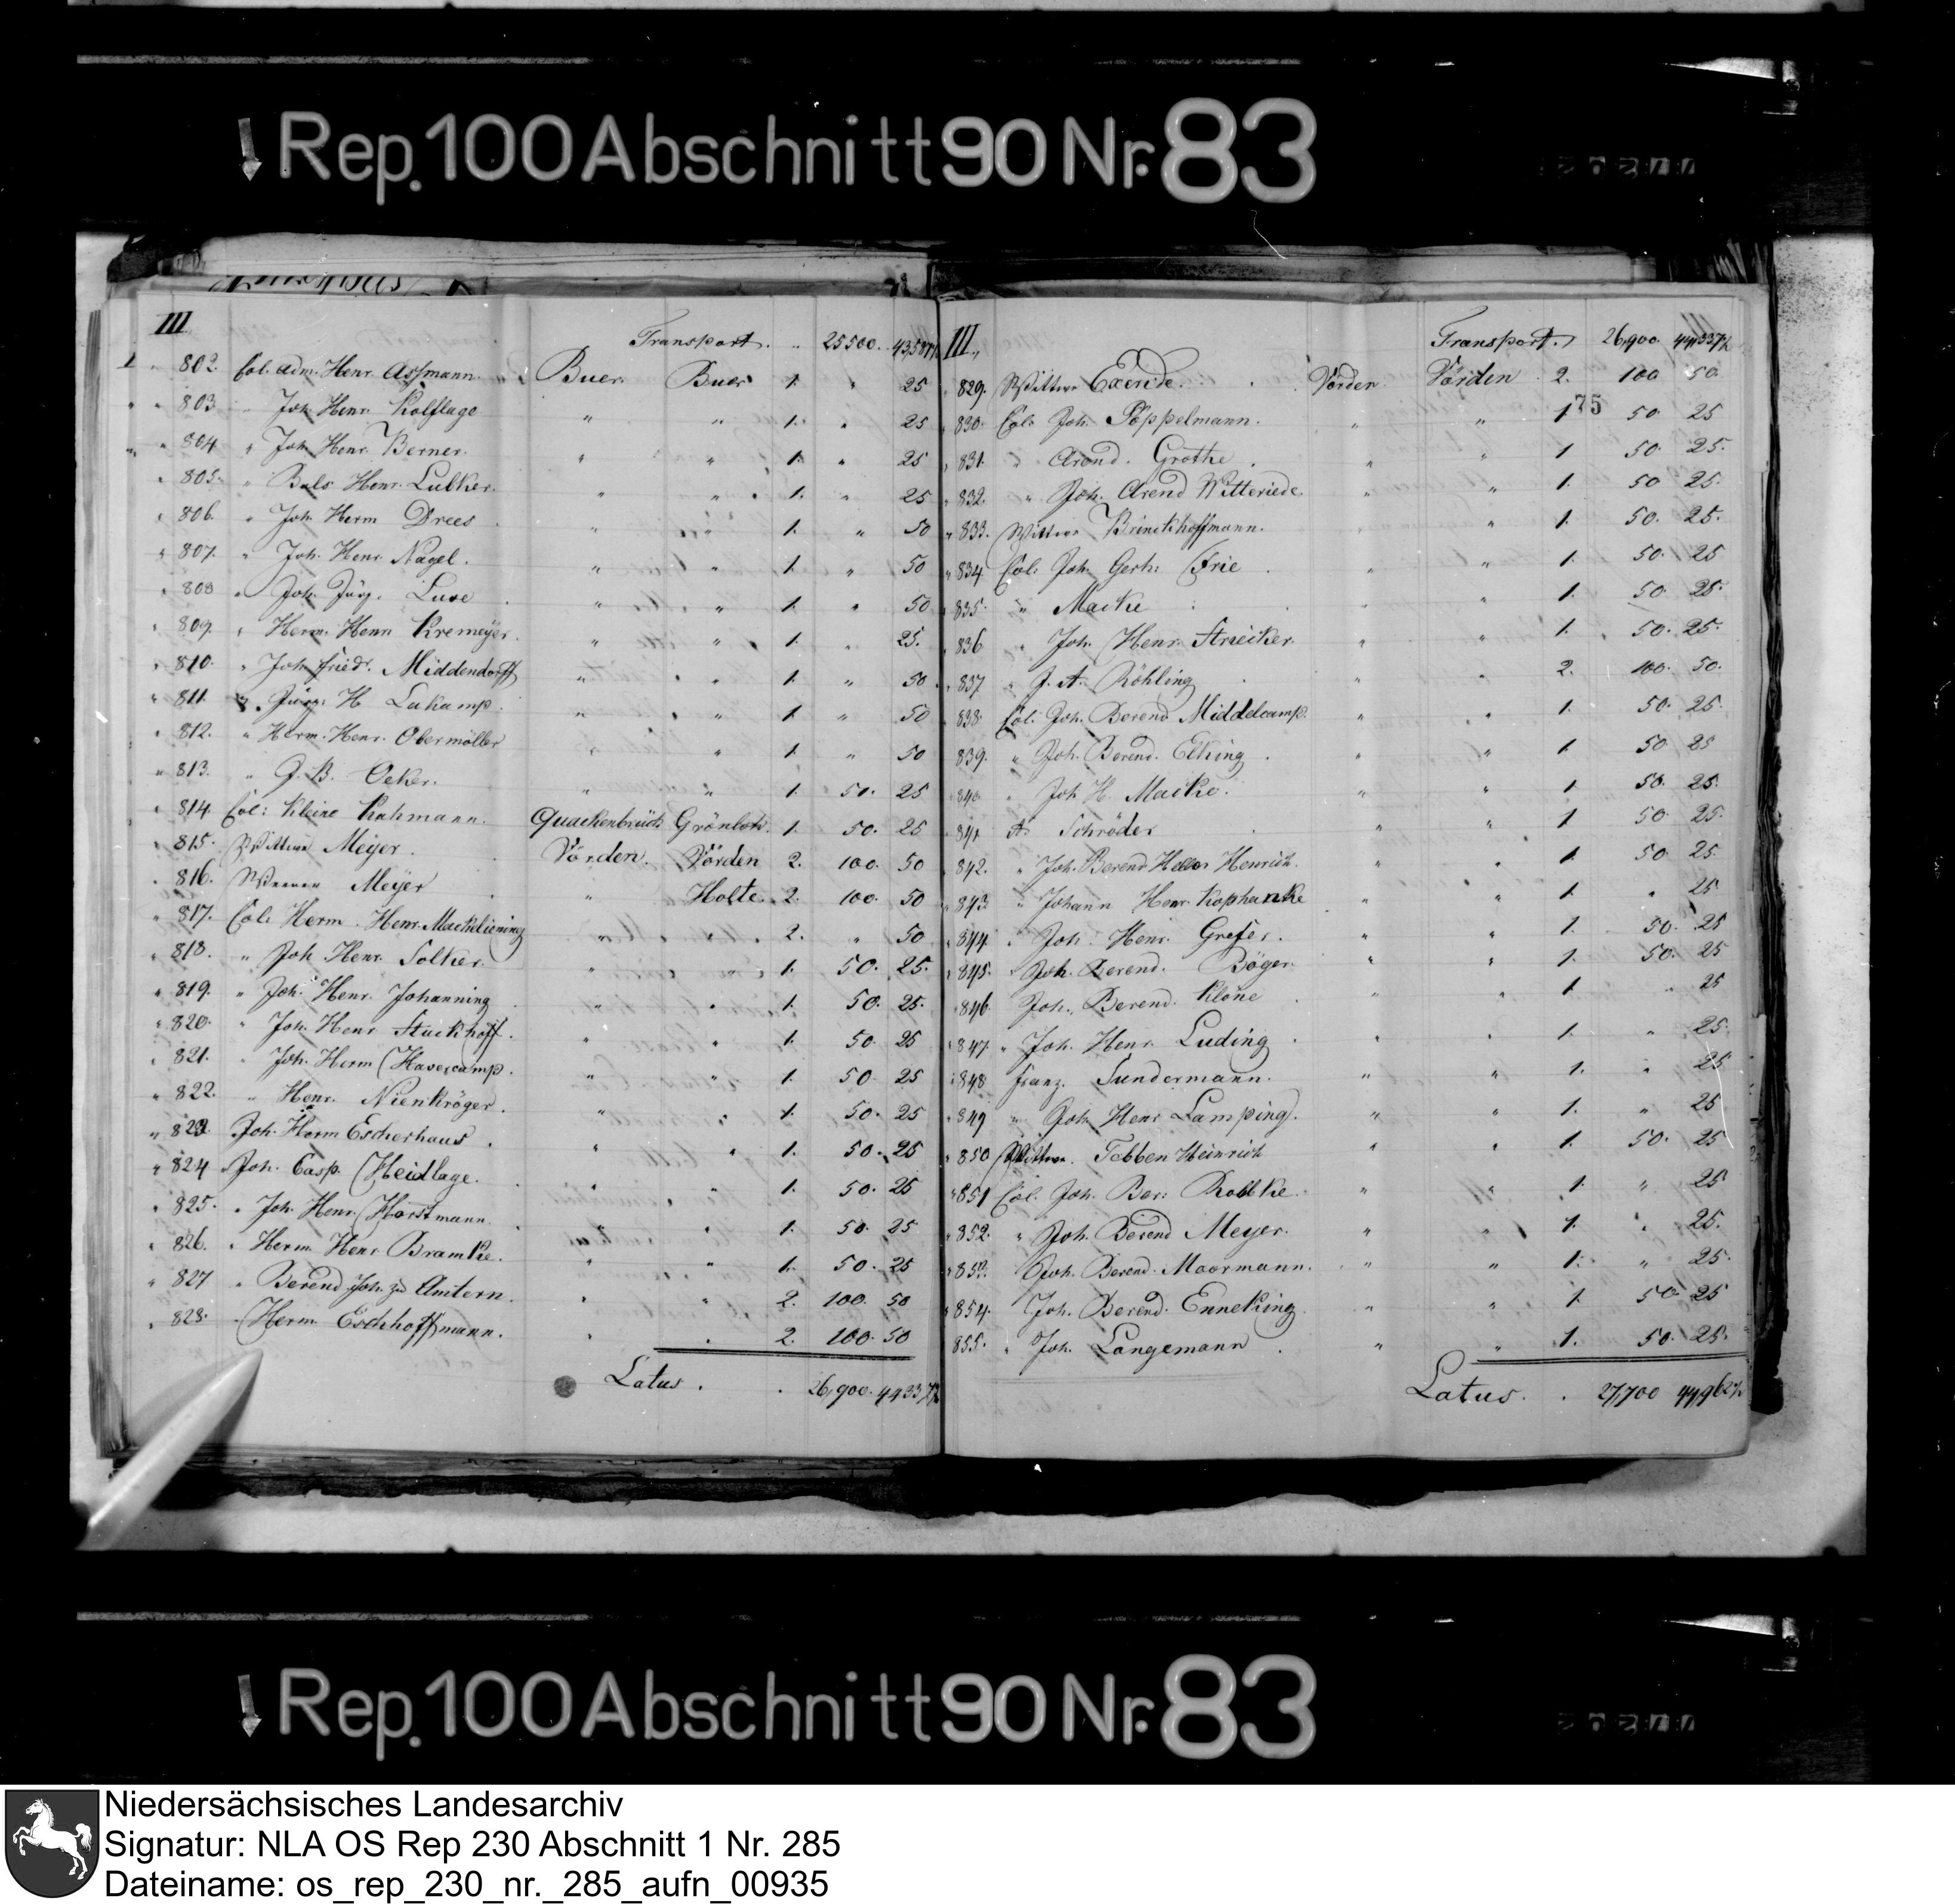 Rep. 100 Abschnitt 90 Nr. 83
III.
Transport. 25500. 43,587½
I " 802. Col. adm. Henr. Assmann. Buer. Buer 1. " 25
" " 803 " Joh. Henr. Kolflage " " 1. " 25
" " 804 " Joh. Henr. Berner. " " 1. " 25
" 805. " Bals Henr. Lulker. " " 1. " 25
" 806. " Joh. Herm Drees " " 1. " 50
" 807. " Joh. Henr. Nagel. " " 1. " 50
" 808 " Joh. Jürg. Luse " " 1. " 50
" 809. " Herm. Henr. Kremeÿer. " " 1. " 25.
" 810. " Joh. Fried. Middendorff " " 1. " 50
" 811. " Jürg. H Lukamp. " " 1. " 50
" 812. " Herm. Henr. Obermöller " " 1. " 50
" 813. " J. B. Ocker. " " 1. 50. 25
" 814. Col: Kleine Kahmann. Quackenbrück Grönloh. 1. 50. 25
" 815. Wittwe Meÿer. Vörden. Vörden 2. 100. 50
" 816. Meÿer " Holte. 2. 100. 50
" 817. Col: Herm. Henr. Mackeliening " " 2. " 50
" 818. " Joh Henr. Solker. " " 1. 50. 25.
" 819. " Joh. Henr. Johanning " " 1. 50. 25.
" 820. " Joh. Henr Stuckhoff. " " 1. 50. 25
" 821. " Joh. Herm Havercamp. " " 1. 50. 25
" 822. " Henr. Nienkröger. " " 1. 50. 25
" 823. Joh. Herm Escherhaus. " " 1. 50. 25
" 824 Joh. Casp. Heidlage. " " 1. 50. 25
" 825. " Joh. Henr. Horstmann. " " 1. 50. 25
" 826. " Herm. Henr Bramke. " " 1. 50. 25
" 827 " Berend Joh. zu Amtern. " " 2. 100. 50
" 828. Herm. Eschhoffmann. " " 2. 100. 50
Latus. 26,900. 44237½
III.
Transport. 26,900. 44,237½
" 829. Wittwe Exende. Vörden. Vörden 2. 100 50.
75
" 830. Col. Joh. Pöppelmann. " " 1 50. 25
" 831. " Arend. Grothe. " " 1 50. 25.
" 832. " Joh. Arend Witteriede. " " 1. 50 25.
" 833. Wittwe Brinckhoffmann. " 1. 50. 25.
" 834 Col: Joh. Gerh: Frie " " 1. 50. 25
" 835. " Macke " " 1. 50. 25.
" 836 " Joh. Henr. Striecker. " " 1. 50. 25.
" 837 " J. A. Röhling " " 2. 100. 50.
" 838. Col: Joh. Berend Middelcamp. " " 1. 50. 25.
" 839. " Joh. Berend. Elking. " " 1 50. 25
" 840. " Joh H. Macke. " " 1 50. 25.
" 841. A. Schröder " " 1 50. 25.
" 842. " Joh. Berend Henrich. " " 1. 50 25.
" 843. " Johann Henr. Kophanke " " 1 " 25
" 844 " Joh. Henr. Grefer. " " 1. 50. 25
" 845. " Joh. Berend. Böger. " " 1. 50. 25
" 846. Joh. Berend. Klöne " " 1 " 25
" 847. " Joh. Henr. Luding. " " 1. " 25.
" 848. Franz. Sundermann. " " 1. " 25
" 849 " Joh. Henr Lamping. " " 1. " 25
" 850 Wittwe. Tebben Heinrich " " 1. 50. 25
" 851 Col. Joh. Ber: " " 1. " 25
" 852. " Joh. Berend Meyer. " " 1. " 25.
" 853. Joh. Berend. Moormann. " " 1. " 25.
" 854. Joh. Berend. Enneking " " 1. 50. 25
" 855. " Joh. Langemann. " " 1. 50. 25.
Latus. 27,700 44,962½
Rep. 100 Abschnitt 90 Nr. 83
Niedersächsisches Landesarchiv
Signatur: NLA OS Rep 230 Abschnitt 1 Nr. 285
Dateiname: os_rep_230_nr._285_aufn_00935